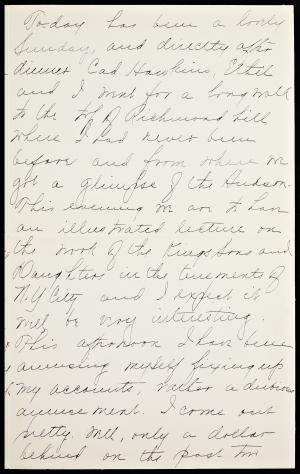 Today has been a lovely
Sunday, and directly after
dinner Cad Hawkins, Ethel
and I went for a long walk
to the top of Richmond hill
where I had never been
before and from where we
got a glimpse of the Hudson.
This evening we are to have
an illustrated lecture on
the work of the Kings Sons and
Daughters in the tenements of
N.Y City and I expect it
will be very interesting.
This afternoon I have been
amusing myself fixing up
my accounts, rather a dubious
amusement. I come out
pretty well, only a dollar
behind on the past two